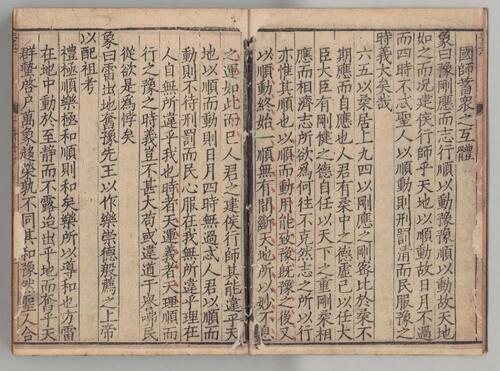 國師晋衆之互體
彖曰豫剛應而志行順以動豫豫順以動故天地
如之而况建侯行師乎天地以順動故日月不過
而四時不忒聖人以順動則刑罰清而民服豫之
時義大矣哉
六五以柔居上九四以剛應之剛啻比於柔不
期應而自應也人君有柔中之德虛已以任大
臣大臣有剛健之德自任以天下之重剛柔相
應而相濟志所欲為何往不克然志之所以行
亦惟其順也以順而動用能致豫既豫之後又
以順動終始一順無有間斷天地所以妙不息
之運如此而已人君之建侯行師其能違乎天
地以順而動則日月四時無過忒人君以順而
動則不待刑罰而民心服在我無所違乎理在
人自無所違乎我也時者天運義者天理順而
行之豫之時義豈不甚大苟或違道干譽咈民
從欲是為悖矣
象曰雷出地奮豫先王以作樂崇德殷薦之上帝
以配祖考
禮極順樂極和順則和矣樂所以導和也方雷
在地中動於至静而不露迨出乎地而奮乎天
群蟄啓户萬象趨榮孰不同其和豫哉聖人合